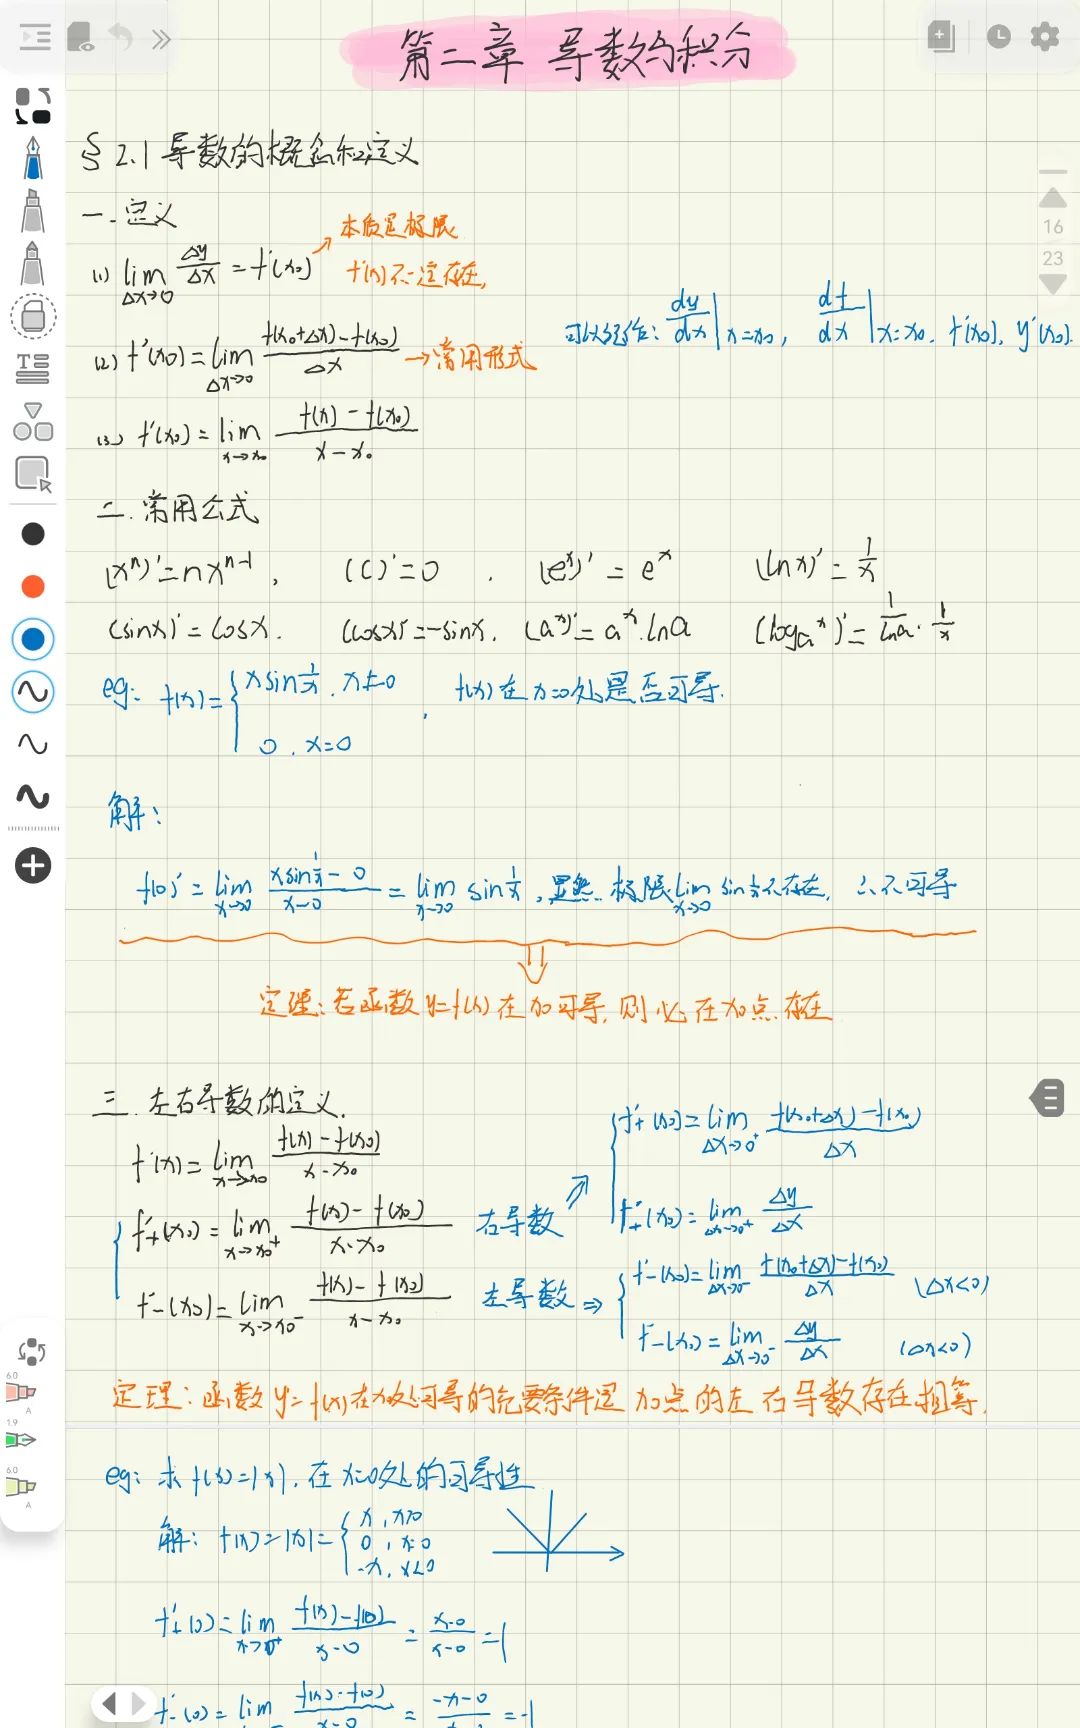 第二章 导数与积分
§2.1 导数的概念和定义
一.定义
(1) lim Δx→0 Δy/Δx = f'(x₀) → 本质是极限
f'(x)不一定存在,
(2) f'(x₀) = lim Δx→0 (f(x₀+Δx)-f(x₀))/Δx → 常用形式
可以记作: dy/dx|x=x₀, df/dx|x=x₀, f'(x₀), y'(x₀).
(3) f'(x₀) = lim x→x₀ (f(x)-f(x₀))/(x-x₀)
二.常用公式
(xⁿ)'=nxⁿ⁻¹, (C)'=0. (eˣ)'=eˣ (lnx)'=1/x
(sinx)'=cosx. (cosx)'=-sinx. (aˣ)'=aˣ·lna (logₐˣ)'=1/lna·1/x
eg: f(x)={ xsin1/x, x≠0
0, x=0
, f(x)在x=0处是否可导.
解:
f(0)'=lim x→0 (xsin1/x-0)/(x-0) = lim x→0 sin1/x, 显然. 极限lim x→0 sin1/x不存在, ∴不可导
定理: 若函数y=f(x)在x₀可导,则必在x₀点存在
三.左右导数的定义.
f'(x)=lim x→x₀ (f(x)-f(x₀))/(x-x₀)
{ f'₊(x₀)=lim x→x₀⁺ (f(x)-f(x₀))/(x-x₀) 右导数 ⇒ { f'₊(x₀)=lim Δx→0⁺ (f(x₀+Δx)-f(x₀))/Δx
f'₊(x₀)=lim Δx→0⁺ Δy/Δx
f'₋(x₀)=lim x→x₀⁻ (f(x)-f(x₀))/(x-x₀) 左导数 ⇒ { f'₋(x₀)=lim Δx→0⁻ (f(x₀+Δx)-f(x₀))/Δx (Δx<0)
f'₋(x₀)=lim Δx→0⁻ Δy/Δx (Δx<0)
定理: 函数y=f(x)在x₀处可导的充要条件是x₀点的左右导数存在相等.
eg: 求f(x)=|x|, 在x=0处的可导性
解: f(x)=|x|={ x, x>0
0, x=0
-x, x<0
f'₊(0)=lim x→0⁺ (f(x)-f(0))/(x-0) = (x-0)/(x-0) =1
f'₋(0)=lim (f(x)-f(0))/(x-0) = (-x-0)/ =-1
16
23
T
6.0
A
1.9
6.0
A